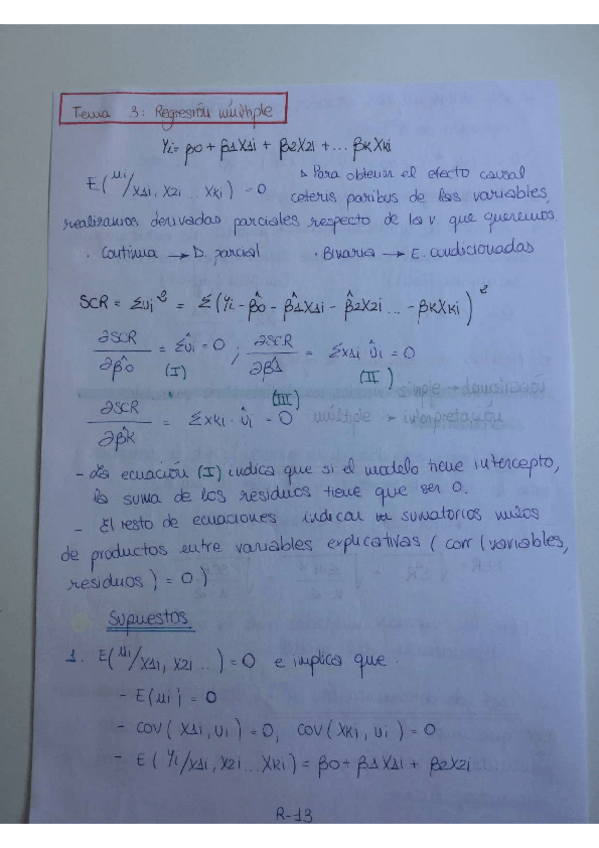 Tema 3: Regresión múltiple
Yi = β0 + β1X1i + β2X2i + ... βkXki
E(μi/X1i, X2i ... Xki) = 0
▵ Para obtener el efecto causal
ceteris paribus de las variables,
realizamos derivadas parciales respecto de la v. que queremos.
· Continua → D. parcial · Binaria → E. condicionadas
SCR = Σui² = Σ(Yi - β̂0 - β̂1X1i - β̂2X2i ... - β̂kXki)²
∂SCR/∂β̂0 = Σûi = 0 ; ∂SCR/∂β̂1 = ΣX1i ûi = 0
(I) (II)
∂SCR/∂β̂k = ΣXki · ûi = 0 (III)
- La ecuación (I) indica que si el modelo tiene intercepto,
la suma de los residuos tiene que ser 0.
- El resto de ecuaciones indican sumatorios nulos
de productos entre variables explicativas (corr (variables,
residuos) = 0)
Supuestos
1. E(μi/X1i, X2i ..) = 0 e implica que .
- E(μi) = 0
- COV(X1i, ui) = 0, COV(Xki, ui) = 0
- E(Yi/X1i, X2i ... Xki) = β0 + β1X1i + β2X2i
R-13